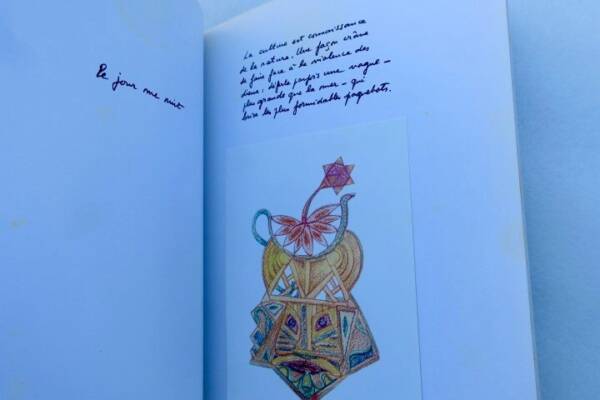 Le jour me nuit
La culture est connaissance
de la nature. Une façon crâne
de faire face à la violence des
dieux ; parfois une vague –
plus grande que la mer – qui
brise les plus formidables paquebots.